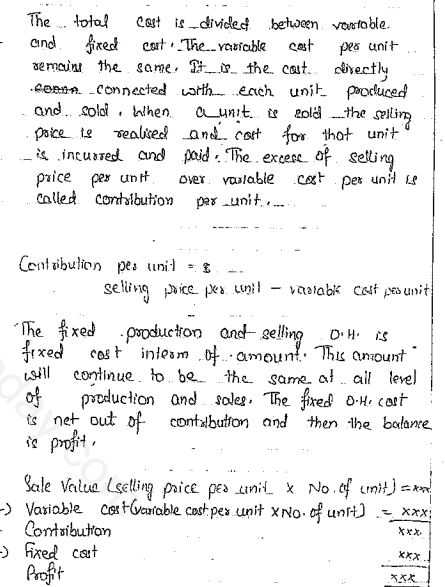 The total cost is divided between variable
and fixed cost. The variable cost per unit
remains the same. It is the cost directly
connected with each unit produced
and sold. When a unit is sold the selling
price is realised and cost for that unit
is incurred and paid. The excess of selling
price per unit over variable cost per unit is
called contribution per unit.
Contribution per unit = $
selling price per unit - variable cost per unit
The fixed production and selling O.H. is
fixed cost interm of amount. This amount
will continue to be the same at all level
of production and sales. The fixed O.H. cost
is net out of contribution and then the balance
is profit.
Sale Value (selling price per unit x No. of unit) = xxx
-) Variable cost (variable cost per unit x No. of unit) = xxx
Contribution xxx
-) Fixed cost xxx
Profit xxx